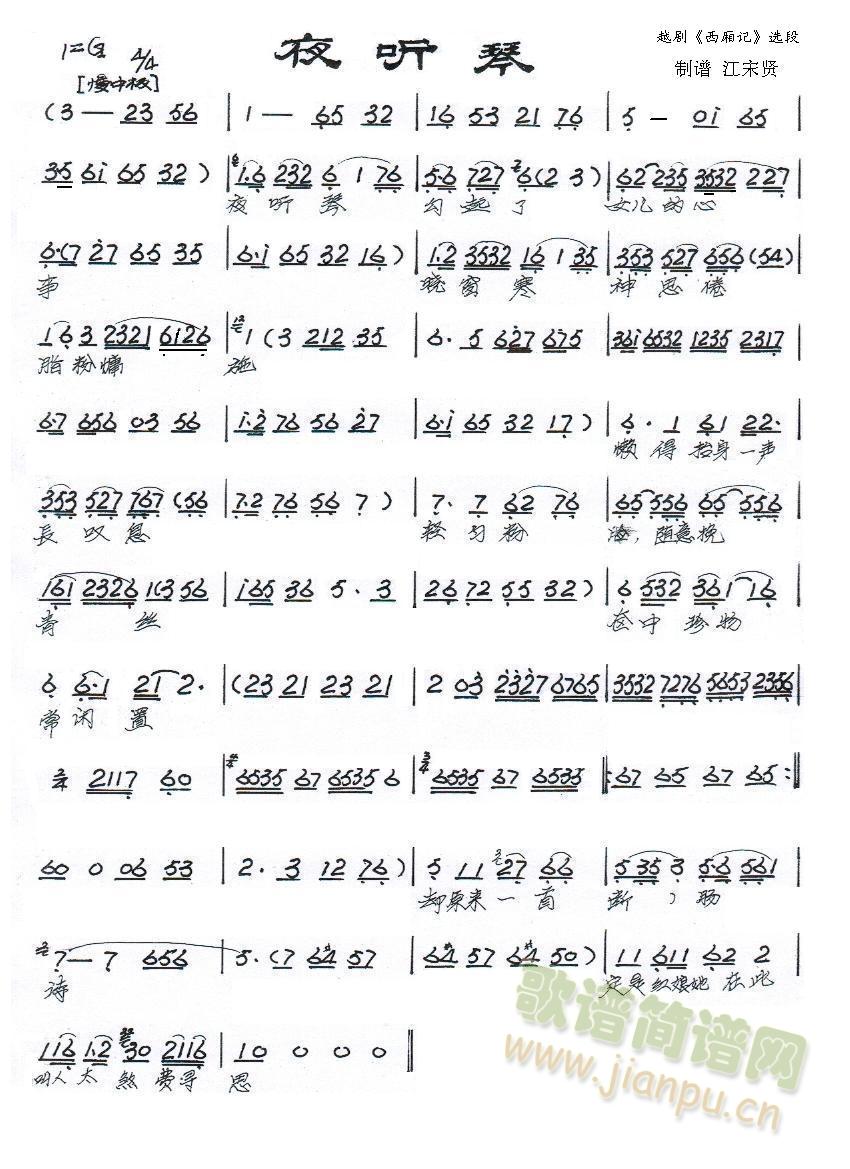 夜听琴
越剧《西厢记》选段
制谱 江宋贤
1=G 4/4
[慢中板]
(3 — 23 56 | 1 — 65 32 | 16 53 21 76 | 5 — 0i 65 |
35 6i 65 32 ) | 1·6 232 6 1 76 | 5·6 727 6(2 3) | 62 235 3532 227 |
夜听琴 勾起了 女儿的心
6·(7 27 65 35 | 6·i 65 32 16 ) | 1·2 3532 16 1 35 | 353 527 656 (54) |
事 晓窗寒 神思倦
1 6 3 2321 6126 | 1 (3 212 35 | 6· 5 627 675 | 36i 6532 1235 2317 |
脂粉慵 施
6·7 656 03 56 | i·2 76 56 27 | 6·i 65 32 17 ) | 6· 1 61 22· |
懒得抬身一声
353 527 767 (56 | 7·2 76 56 7 ) | 7· 7 62 76 | 65 556 65 556 |
長叹息 轻匀粉 随意挽
161 2326 1(3 56 | i65 36 5·3 | 26 72 55 32 ) | 6 532 361 16 |
青丝 奁中珍物
6 6·1 21 2· | (23 21 23 21 | 2 03 2327 6765 | 3532 7276 5653 2356 |
常闲置
2/4 2117 60 | 6535 67 6535 6 | 6535 67 6535 |: 67 65 67 65 :|
60 0 06 53 | 2· 3 12 76 ) | 5 11 27 66 | 5 35 3 5·6 561 |
却原来一首 断 肠
7 — 7 656 | 5·(7 6#4 57 | 6#4 57 6#4 50 ) | 11 611 62 2 |
诗 定是红娘她在此
116 1·2 30 2116 | 10 0 0 0 ‖
叫人太煞费寻思
歌谱简谱网
www.jianpu.cn